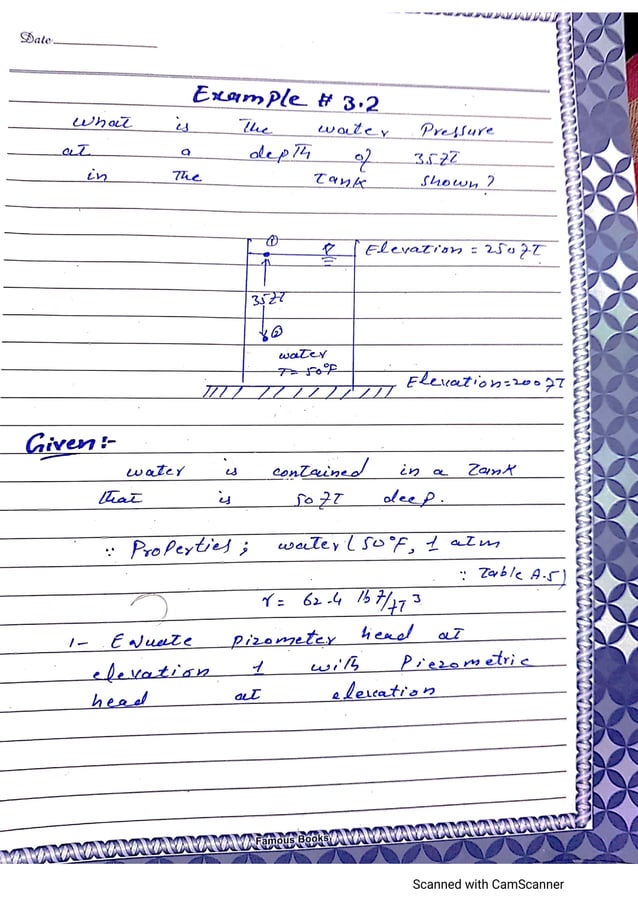 Date
Example # 3.2
what is The water Pressure
at a depth of 35ft
in The Tank shown?
①
Elevation = 250fT
35ft
②
water
T= 50°F
Elevation=200fT
Given:-
water is contained in a Tank
that is 50 fT deep.
∵ Properties; water (50°F, 1 atm
∵ Table A.5)
γ= 62.4 lbf/fT³
1- Equate pizometer head at
elevation 1 with Piezometric
head at elevation
Famous Books
Scanned with CamScanner